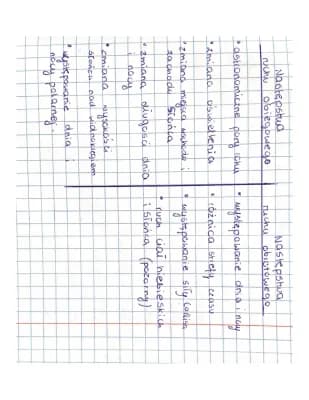 Następstwa
ruchu obiegowego
• astronomiczne pory roku
• zmiana oświetlenia
• zmiana miejsca wschodu i
zachodu Słońca
• zmiana długości dnia
i nocy
• zmiana wysokości
słońca nad widnokręgiem
• występowanie dnia i
nocy polarnej.
Następstwa
ruchu obrotowego
• występowanie dnia i nocy
• różnica strefy czasu
• występowanie siły Coriolisa
• ruch ciał niebieskich
i Słońca (pozorny)